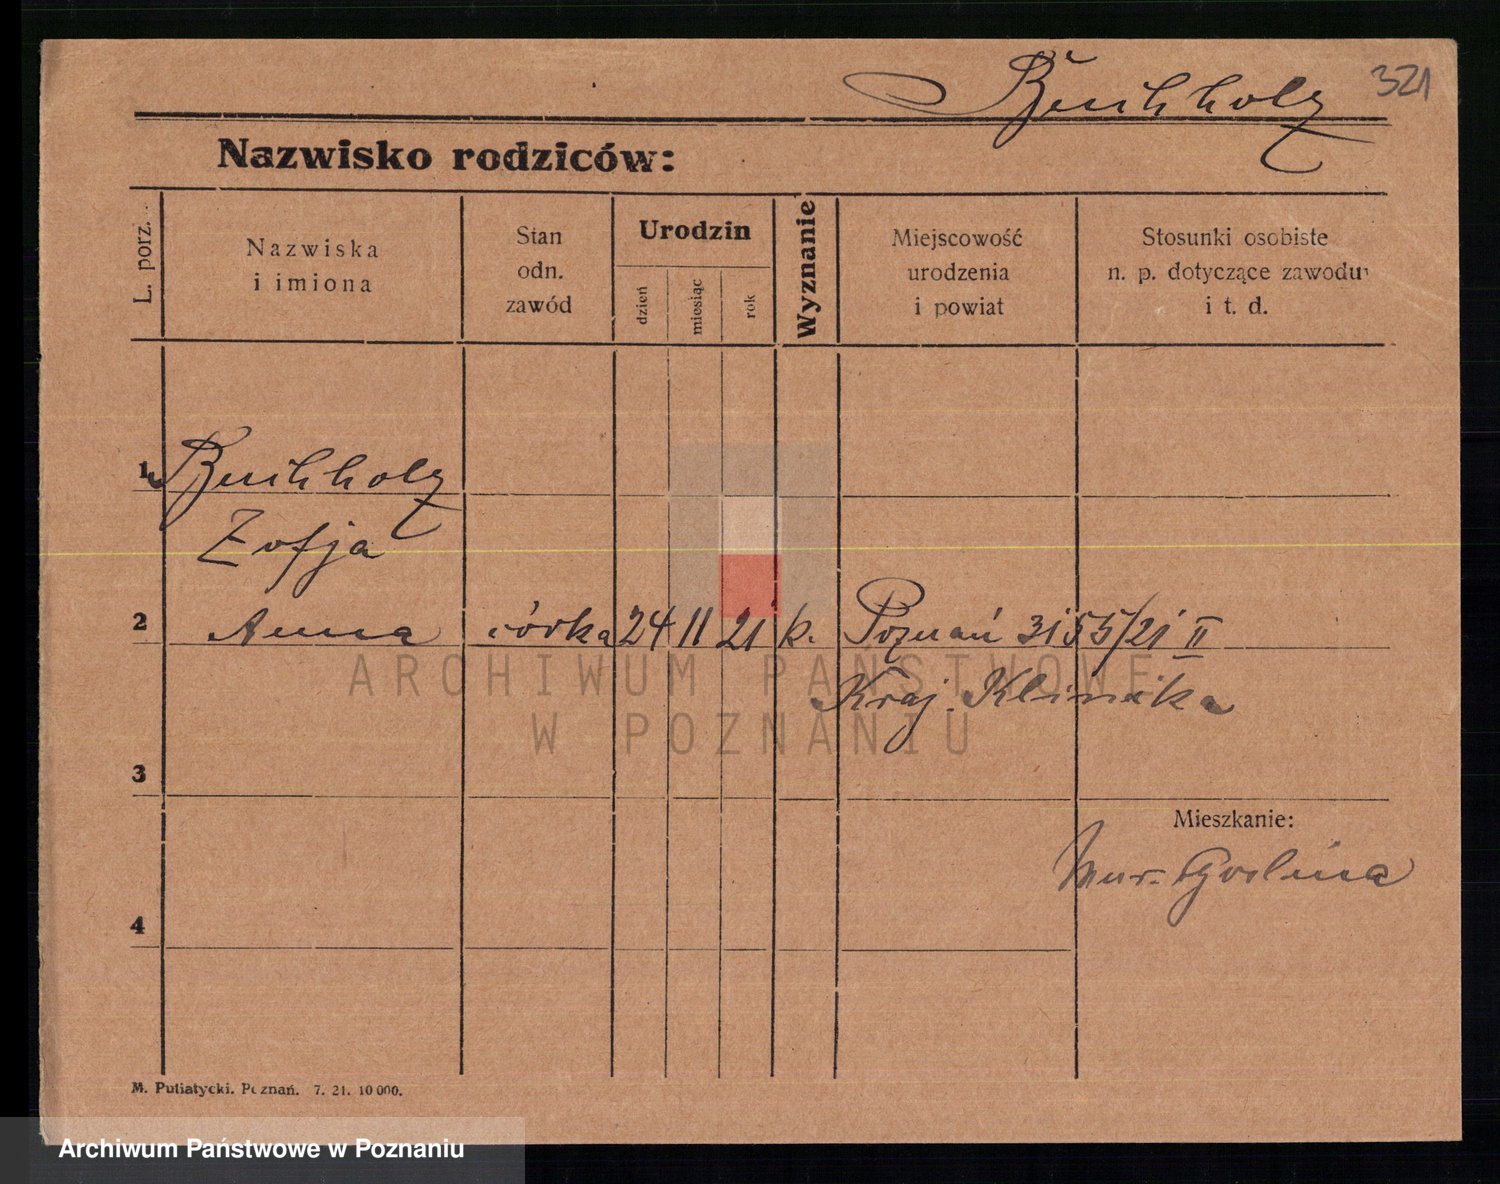 Buchholz 321
Nazwisko rodziców:
L. porz.
Nazwiska
i imiona
Stan
odn.
zawód
Urodzin
dzień
miesiąc
rok
Wyznanie
Miejscowość
urodzenia
i powiat
Stosunki osobiste
n. p. dotyczące zawodu
i t. d.
1 Buchholz
Zofja
2 Anna córka 24 11 21 k. Poznań 3155/21 II
Kraj. Klinika
ARCHIWUM PAŃSTWOWE
W POZNANIU
3
Mieszkanie:
Mur. Goślina
4
M. Putiatycki. Poznań. 7. 21. 10 000.
Archiwum Państwowe w Poznaniu